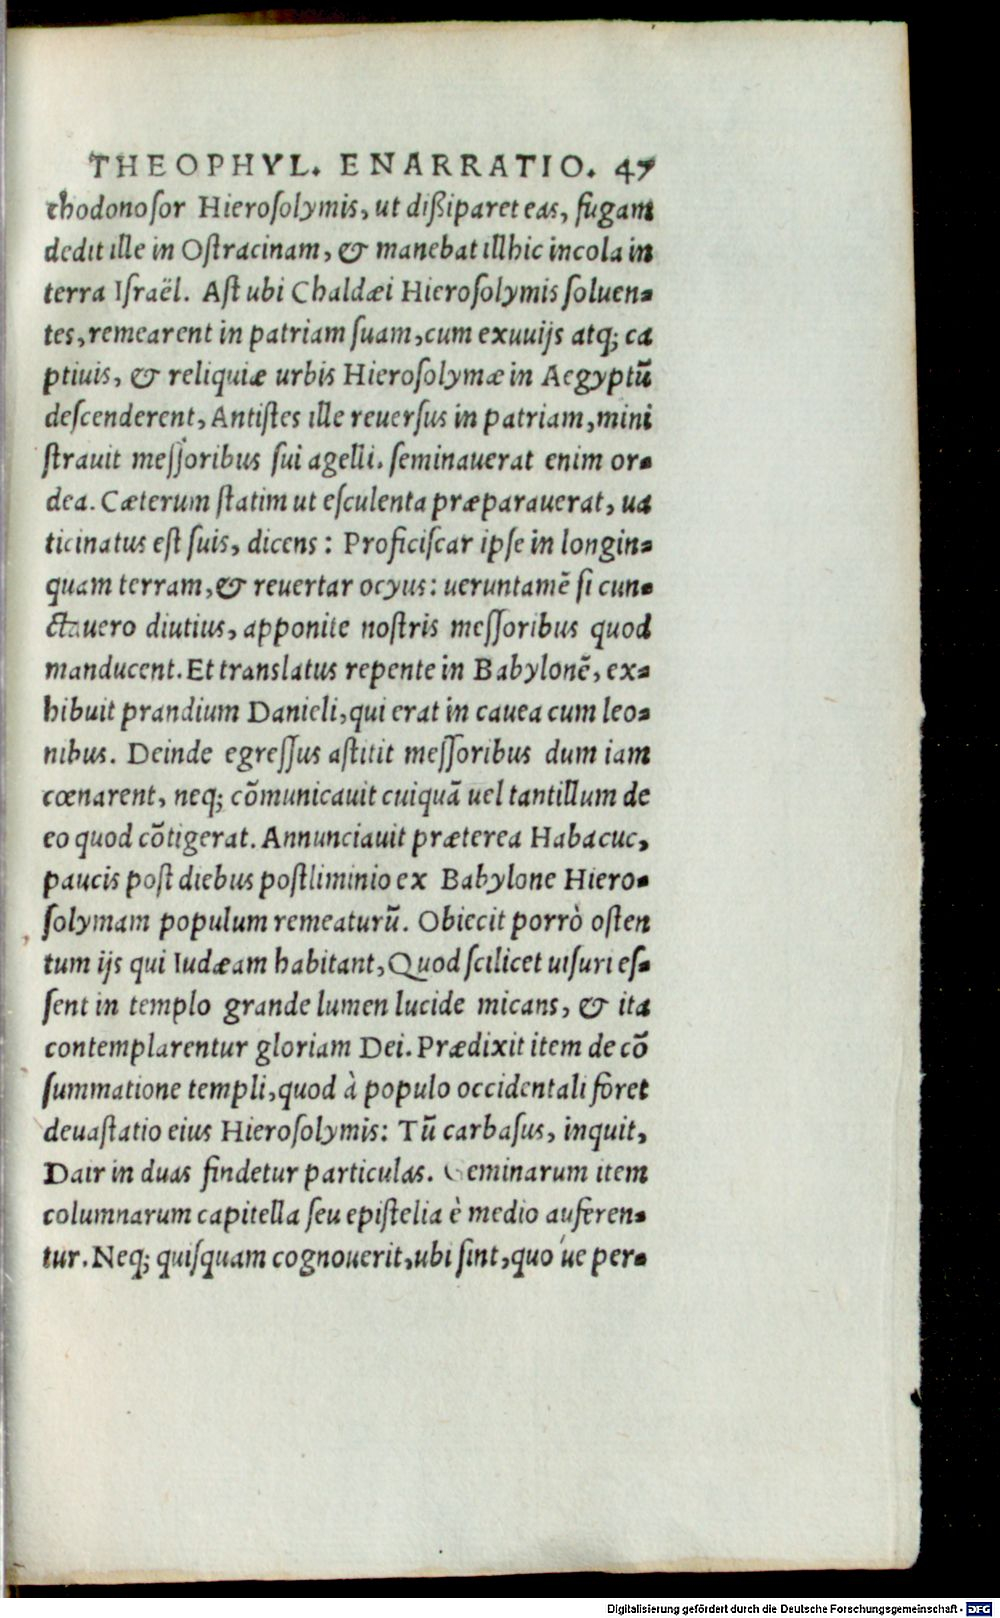 THEOPHYL. ENARRATIO. 47
chodonosor Hierosolymis, ut dißiparet eas, fugam
dedit ille in Ostracinam, & manebat illhic incola in
terra Israël. Ast ubi Chaldæi Hierosolymis soluen-
tes, remearent in patriam suam, cum exuuijs atq; ca
ptiuis, & reliquiæ urbis Hierosolymæ in Aegyptū
descenderent, Antistes ille reuersus in patriam, mini
strauit messoribus sui agelli. seminauerat enim or-
dea. Cæterum statim ut esculenta præparauerat, ua
ticinatus est suis, dicens: Proficiscar ipse in longin-
quam terram, & reuertar ocyus: ueruntamē si cun-
ctauero diutius, apponite nostris messoribus quod
manducent. Et translatus repente in Babylonē, ex-
hibuit prandium Danieli, qui erat in cauea cum leo-
nibus. Deinde egressus astitit messoribus dum iam
cœnarent, neq; cōmunicauit cuiquā uel tantillum de
eo quod cōtigerat. Annunciauit præterea Habacuc,
paucis post diebus postliminio ex Babylone Hiero-
solymam populum remeaturū. Obiecit porrò osten
tum ijs qui Iudæam habitant, Quod scilicet uisuri es-
sent in templo grande lumen lucide micans, & ita
contemplarentur gloriam Dei. Prædixit item de cō
summatione templi, quod à populo occidentali foret
deuastatio eius Hierosolymis: Tū carbasus, inquit,
Dair in duas findetur particulas. Geminarum item
columnarum capitella seu epistelia è medio auferen-
tur. Neq; quisquam cognouerit, ubi sint, quo'ue per-
Digitalisierung gefördert durch die Deutsche Forschungsgemeinschaft - DFG